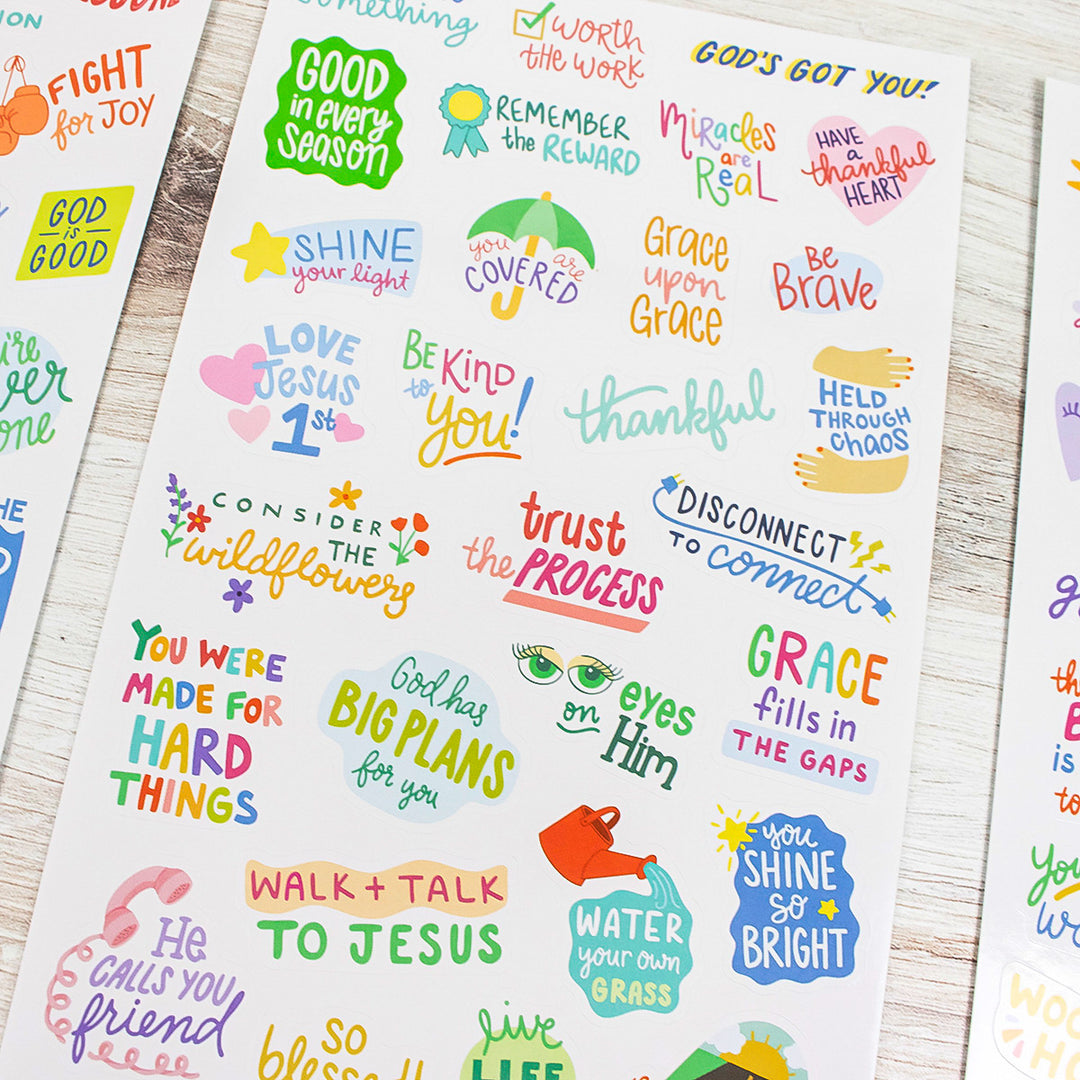 ION
FIGHT
for JOY
GOD
is
GOOD
one
HE
something
WORTH
the WORK
GOD'S GOT YOU!
GOOD
in every
season
REMEMBER
the REWARD
Miracles
are
ReaL
HAVE
a
thankful
HEART
SHINE
your light
you are
COVERED
Grace
upon
Grace
Be
Brave
LOVE
Jesus
1st
Be Kind
to
you!
thankful
HELD
THROUGH
Chaos
CONSIDER
THE
wildflowers
trust
the PROCESS
DISCONNECT
TO connect
YOU WERE
MADE FOR
HARD
THINGS
God has
BIG PLANS
for you
eyes
on Him
GRACE
fills in
THE GAPS
He
CALLS YOU
friend
WALK + TALK
TO JESUS
WATER
your own
GRASS
you
SHINE
so
BRIGHT
SO
blessed
live
LIFE
is
to